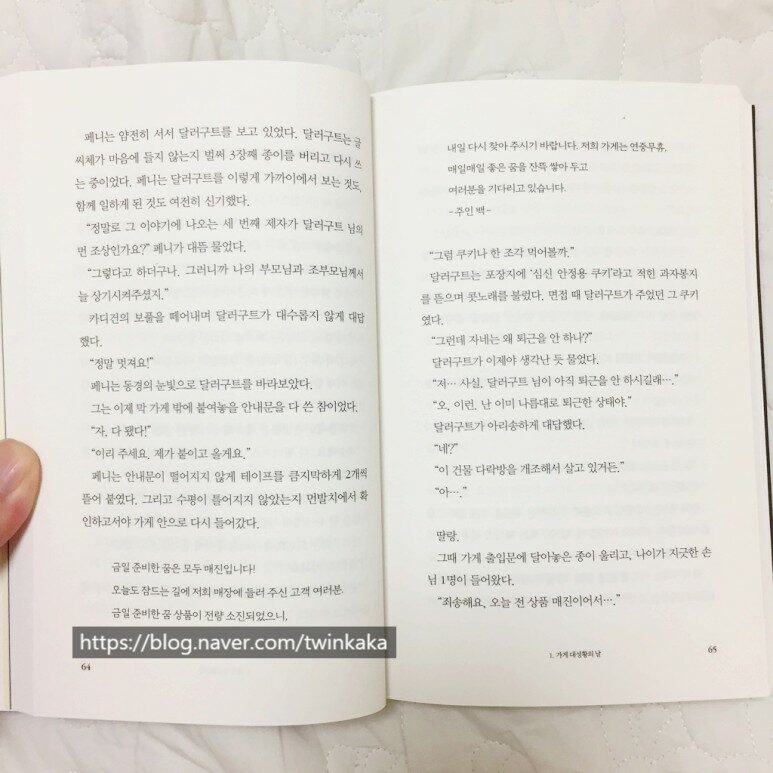 페니는 얌전히 서서 달러구트를 보고 있었다. 달러구트는 글
씨체가 마음에 들지 않는지 벌써 3장째 종이를 버리고 다시 쓰
는 중이었다. 페니는 달러구트를 이렇게 가까이에서 보는 것도,
함께 일하게 된 것도 여전히 신기했다.
“정말로 그 이야기에 나오는 세 번째 제자가 달러구트 님의
먼 조상인가요?” 페니가 대뜸 물었다.
“그렇다고 하더구나. 그러니까 나의 부모님과 조부모님께서
늘 상기시켜주셨지.”
카디건의 보풀을 떼어내며 달러구트가 대수롭지 않게 대답
했다.
“정말 멋져요!”
페니는 동경의 눈빛으로 달러구트를 바라보았다.
그는 이제 막 가게 밖에 붙여놓을 안내문을 다 쓴 참이었다.
“자, 다 됐다!”
“이리 주세요. 제가 붙이고 올게요.”
페니는 안내문이 떨어지지 않게 테이프를 큼지막하게 2개씩
뜯어 붙였다. 그리고 수평이 틀어지지 않았는지 먼발치에서 확
인하고서야 가게 안으로 다시 들어갔다.
금일 준비한 꿈은 모두 매진입니다!
오늘도 잠드는 길에 저희 매장에 들러 주신 고객 여러분.
금일 준비한 꿈 상품이 전량 소진되었으니,
https://blog.naver.com/twinkaka
64
내일 다시 찾아 주시기 바랍니다. 저희 가게는 연중무휴,
매일매일 좋은 꿈을 잔뜩 쌓아 두고
여러분을 기다리고 있습니다.
- 주인 백 -
“그럼 쿠키나 한 조각 먹어볼까.”
달러구트는 포장지에 ‘심신 안정용 쿠키’라고 적힌 과자봉지
를 뜯으며 콧노래를 불렀다. 면접 때 달러구트가 주었던 그 쿠키
였다.
“그런데 자네는 왜 퇴근을 안 하나?”
달러구트가 이제야 생각난 듯 물었다.
“저… 사실, 달러구트 님이 아직 퇴근을 안 하시길래….”
“오, 이런. 난 이미 나름대로 퇴근한 상태야.”
달러구트가 아리송하게 대답했다.
“네?”
“이 건물 다락방을 개조해서 살고 있거든.”
“아….”
딸랑.
그때 가게 출입문에 달아놓은 종이 울리고, 나이가 지긋한 손
님 1명이 들어왔다.
“죄송해요, 오늘 전 상품 매진이어서….”
1. 가게 대성황의 날
65